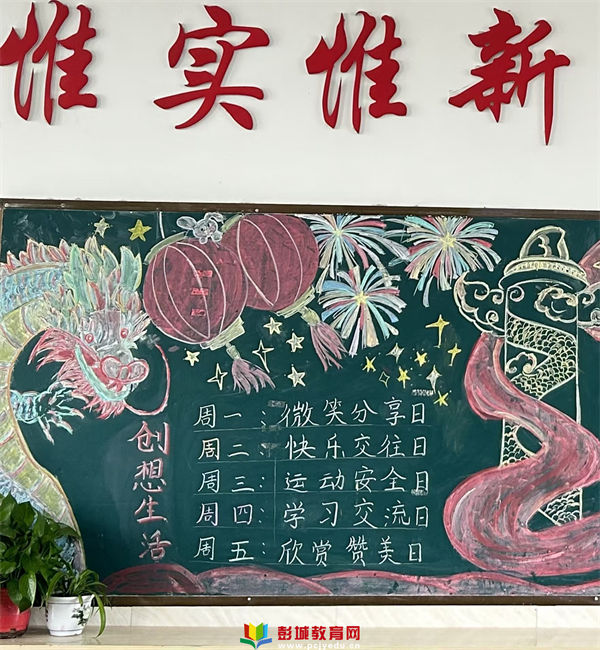 惟实惟新
创想生活
周一：微笑分享日
周二：快乐交往日
周三：运动安全日
周四：学习交流日
周五：欣赏赞美日
彭城教育网
www.pcjyedu.cn